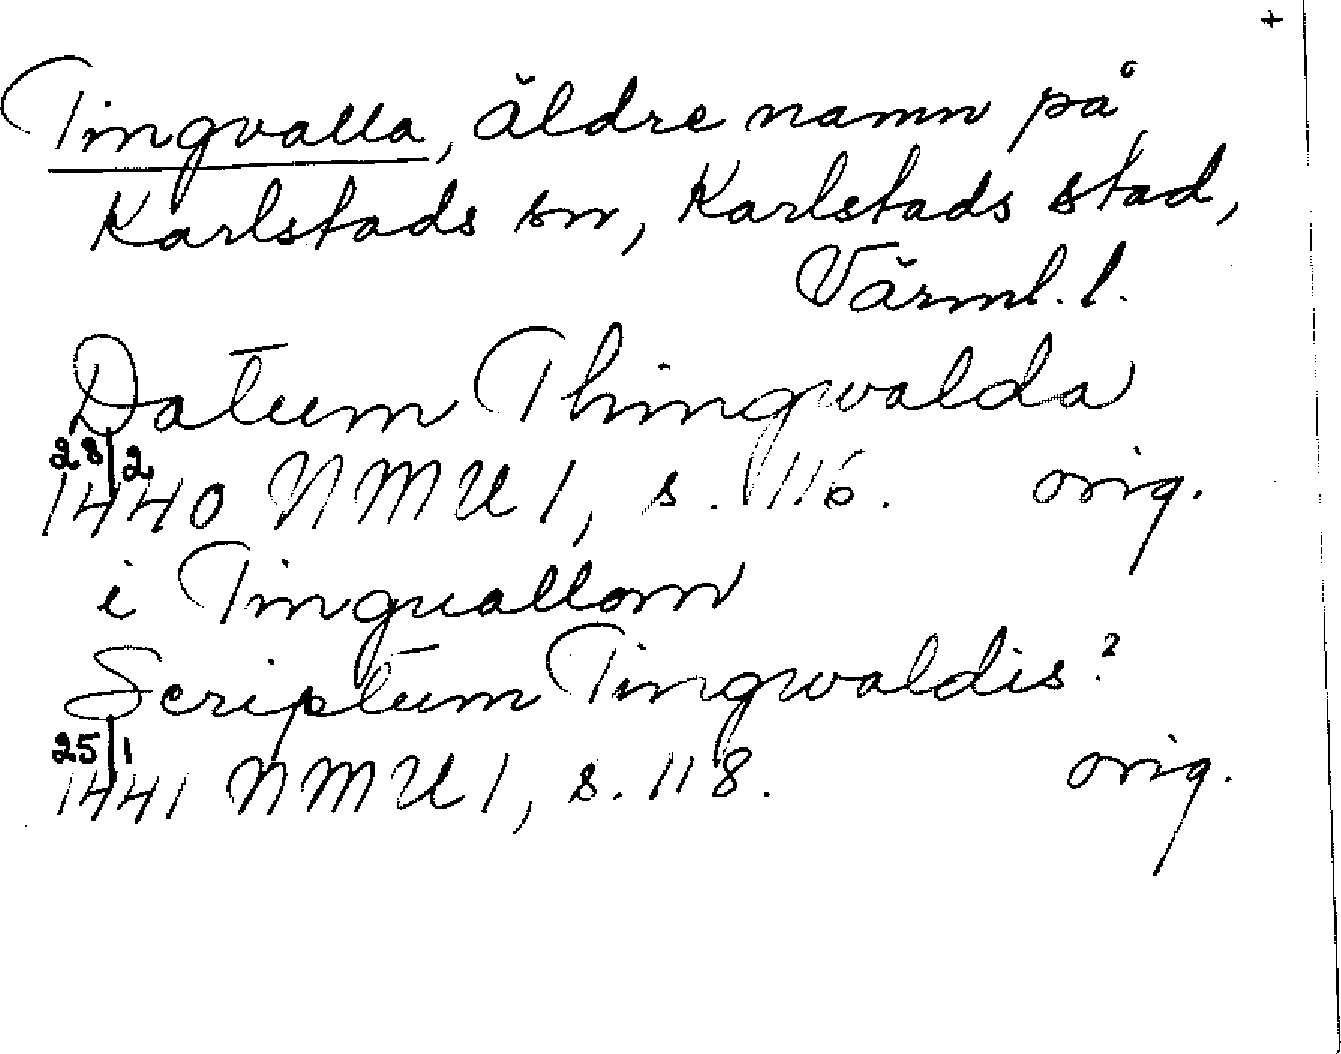 +
Tingvalla, äldre namn på
Karlstads sn, Karlstads stad,
Värml. l.
Datum Thingwalda
28/2
1440 NMU 1, s. 116. orig.
i Tinguallom
Scriptum Tingwaldis?
25/1
1441 NMU 1, s. 118. orig.